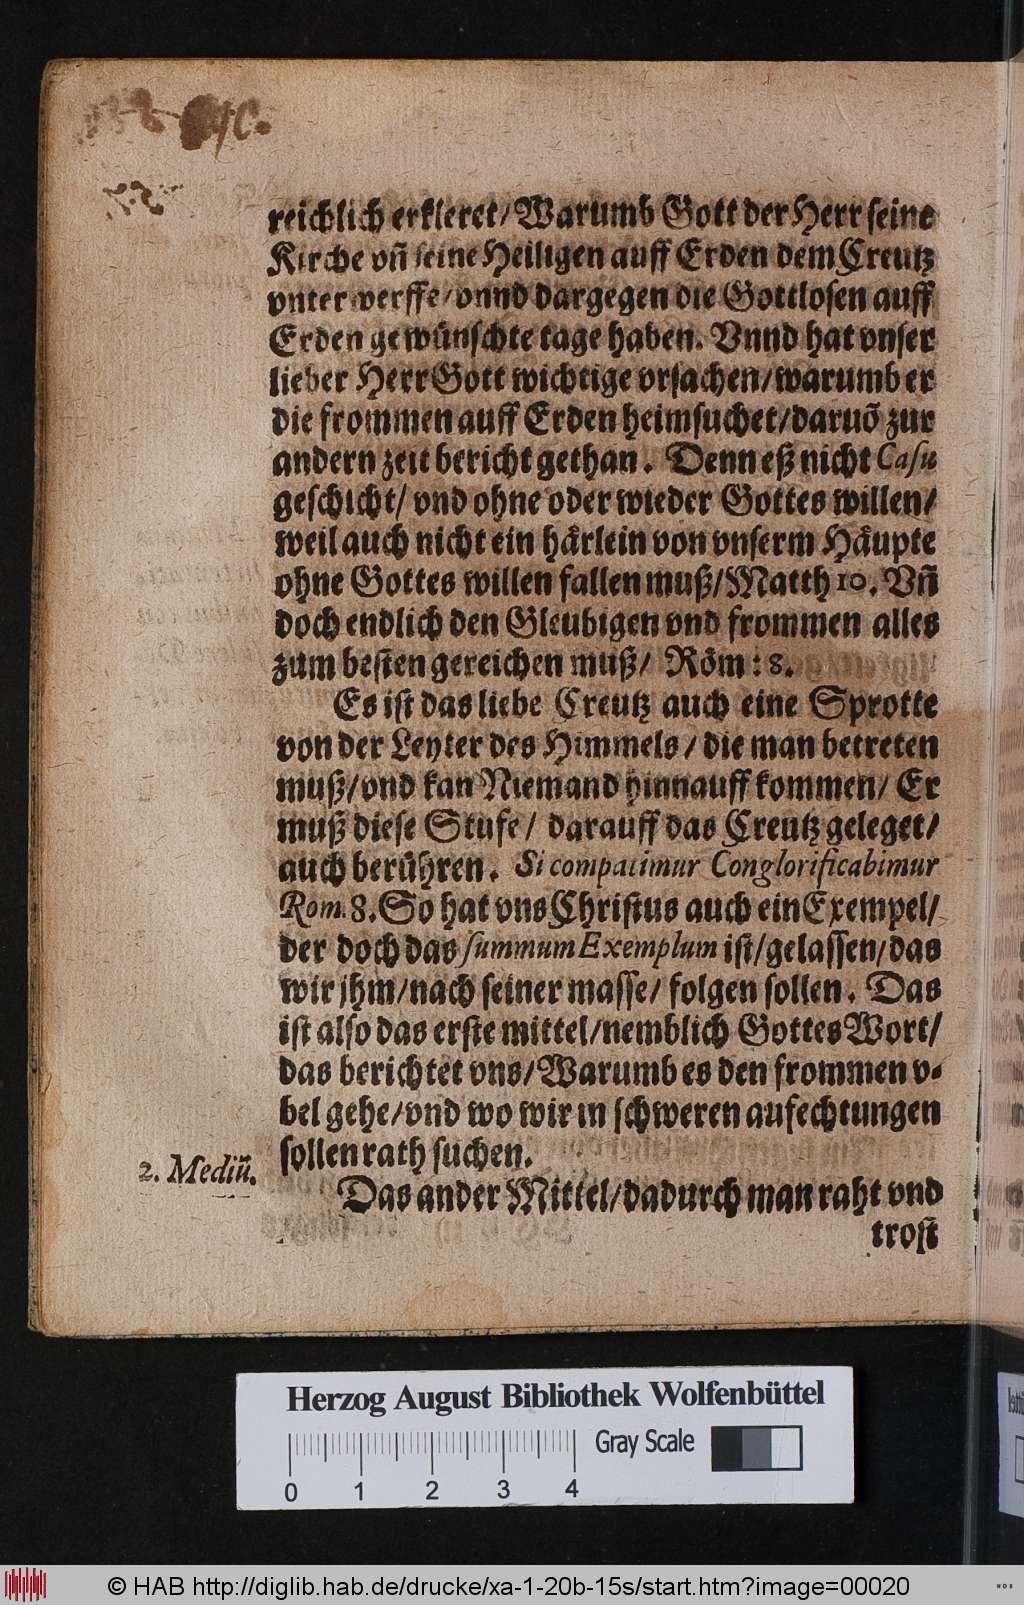 reichlich erkleret/ Warumb Gott der Herr seine
Kirche vñ seine Heiligen auff Erden dem Creutz
vnter werffe/ vnnd dargegen die Gottlosen auff
Erden gewünschte tage haben. Vnnd hat vnser
lieber Herr Gott wichtige vrsachen/ warumb er
die frommen auff Erden heimsuchet/ daruõ zur
andern zeit bericht gethan. Denn eß nicht Casu
geschicht/ vnd ohne oder wieder Gottes willen/
weil auch nicht ein härlein von vnserm Häupte
ohne Gottes willen fallen muß/ Matth 10. Vñ
doch endlich den Gleubigen vnd frommen alles
zum besten gereichen muß/ Röm: 8.
Es ist das liebe Creutz auch eine Sprotte
von der Leyter des Himmels/ die man betreten
muß/ vnd kan Niemand hinnauff kommen/ Er
muß diese Stufe/ darauff das Creutz geleget/
auch berühren. Si compatimur Conglorificabimur
Rom. 8. So hat vns Christus auch ein Exempel/
der doch das summum Exemplum ist/ gelassen/ das
wir jhm/ nach seiner masse/ folgen sollen. Das
ist also das erste mittel/ nemblich Gottes Wort/
das berichtet vns/ Warumb es den frommen v-
bel gehe/ vnd wo wir in schweren aufechtungen
sollen rath suchen.
2. Mediũ.
Das ander Mittel/ dadurch man raht vnd
trost
Herzog August Bibliothek Wolfenbüttel
Gray Scale
0 1 2 3 4
© HAB http://diglib.hab.de/drucke/xa-1-20b-15s/start.htm?image=00020